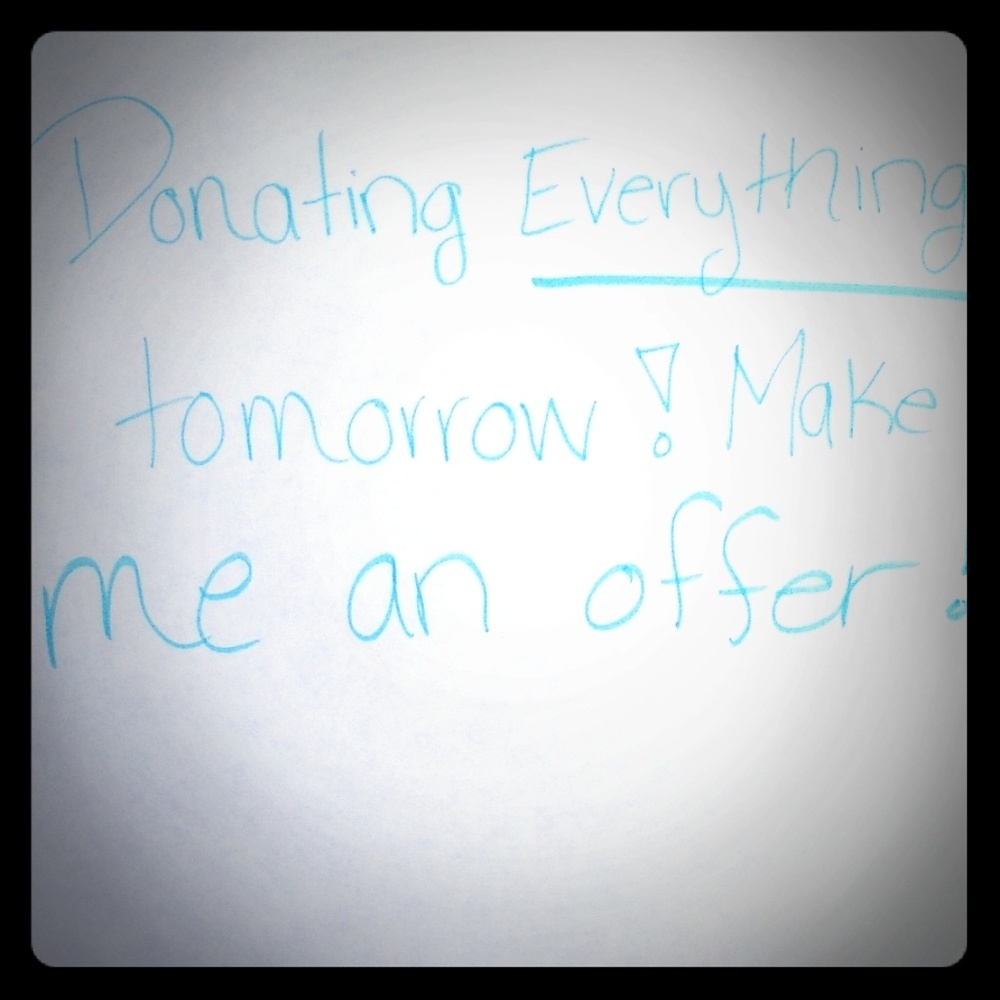 Donating Everything
tomorrow! Make
me an offer!